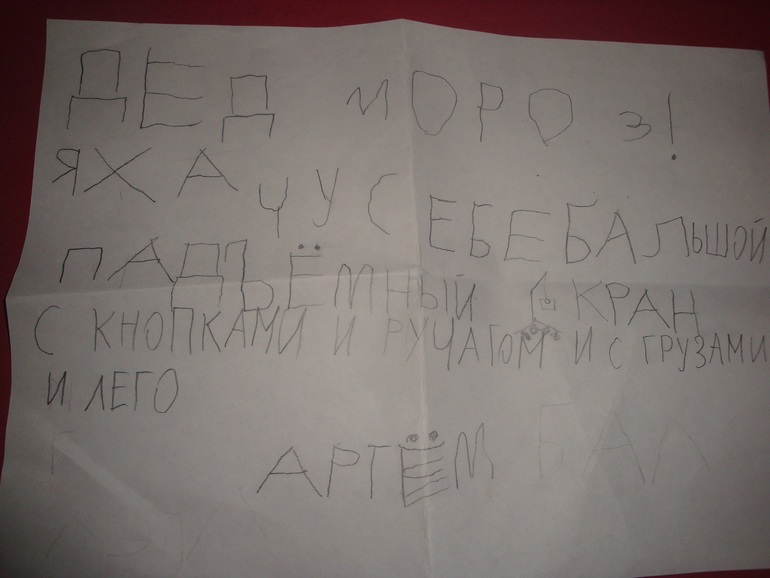 ДЕД МОРОЗ!
ЯХАЧУ СЕБЕ БАЛЬШОЙ
ПАДЪЁМНЫЙ КРАН
С КНОПКАМИ И РУЧАГОМ И С ГРУЗАМИ
И ЛЕГО
АРТЁМ БАЛ